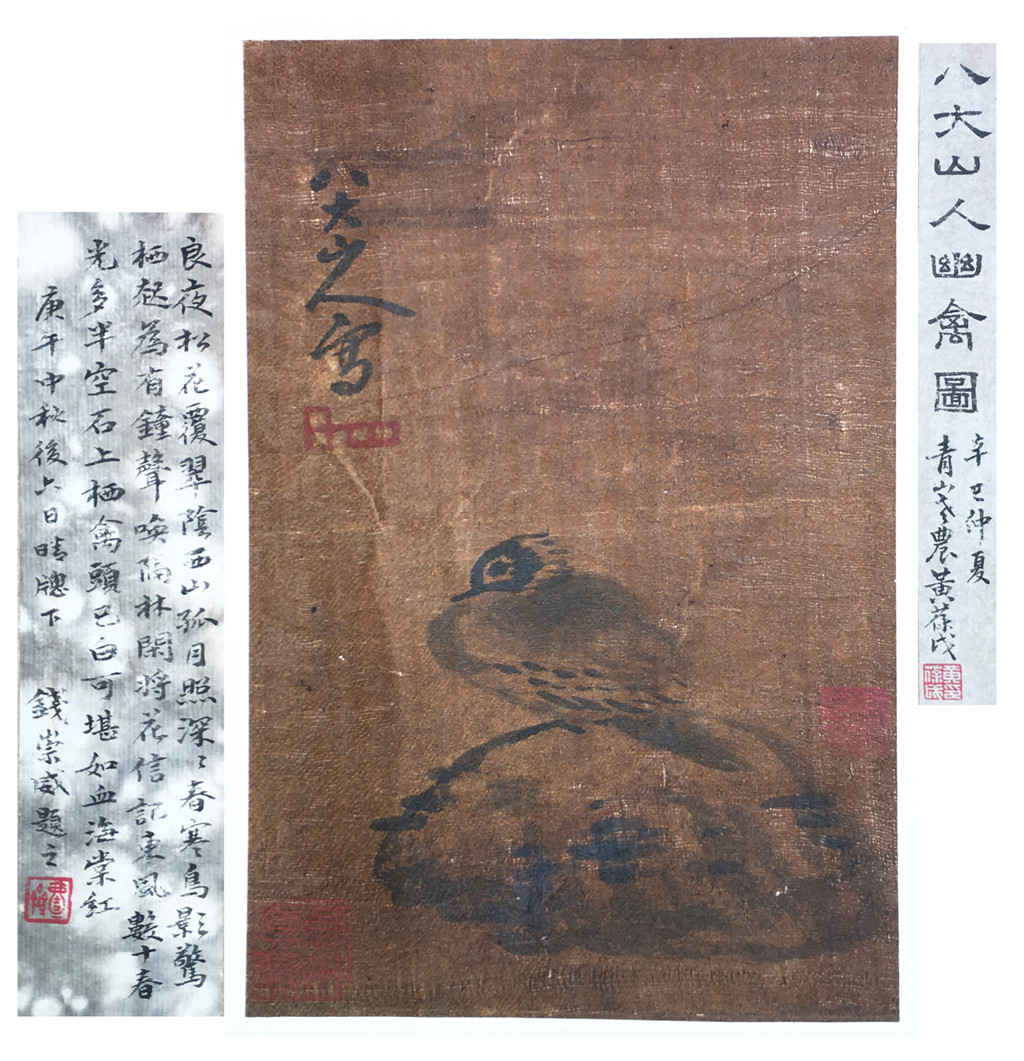 八大山人幽禽圖
辛巳仲夏
青山老農黃葆戉
八大山人寫
良夜松花覆翠陰西山孤月照深〻春寒鳥影驚
栖起為有鐘聲喚隔林閑將花信記東風數十春
光多半空石上栖禽頭已白可堪如血海棠紅
庚午中秋後六日晴牕下
錢崇威題之